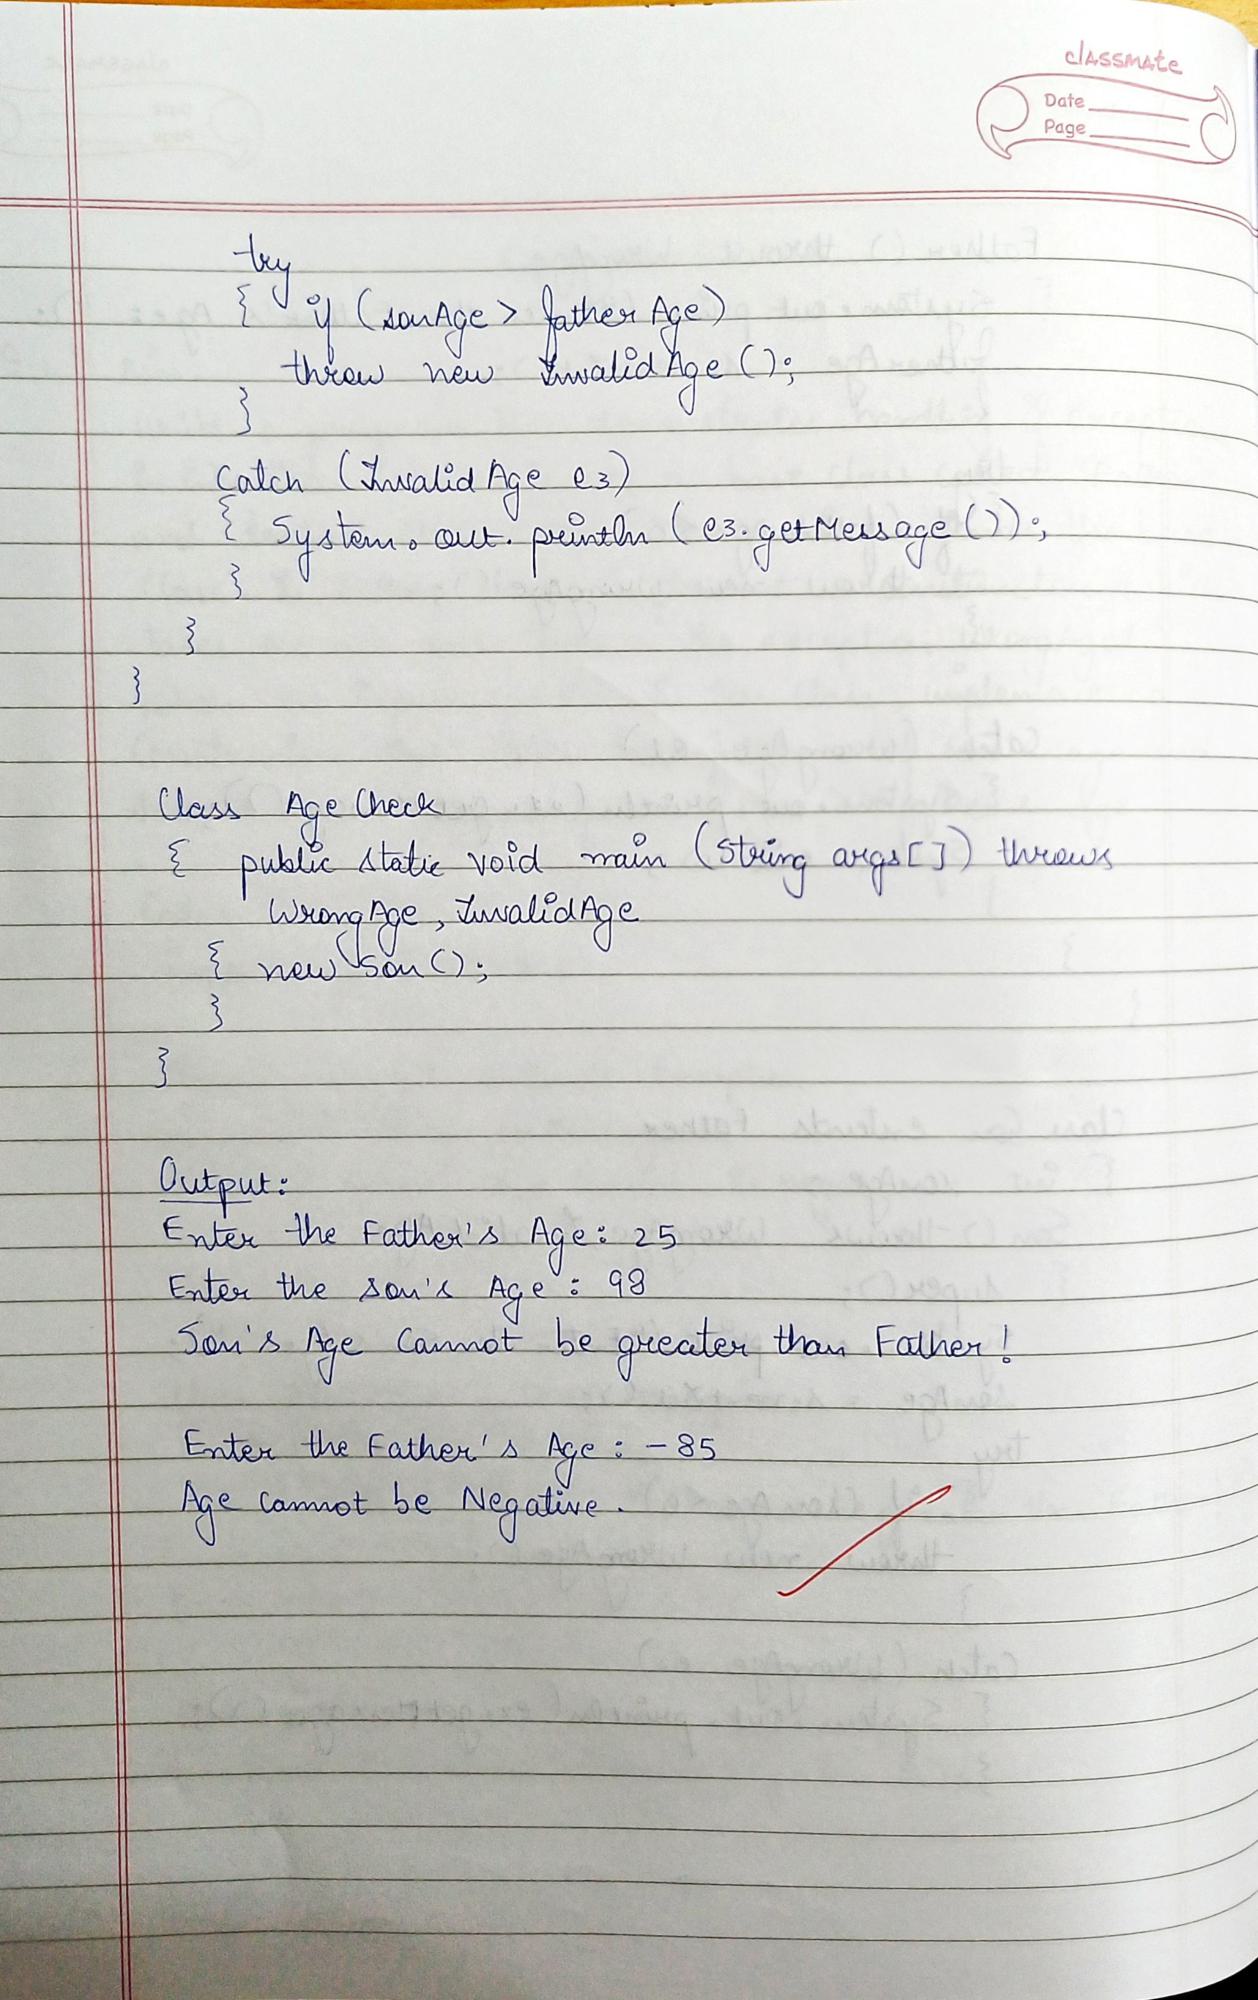 classmate
Date
Page
try
{ if (sonAge > fatherAge)
throw new InvalidAge();
}
Catch (InvalidAge e3)
{ System.out.println(e3.getMessage());
}
}
}
Class AgeCheck
{ public static void main (String args[]) throws
WrongAge, InvalidAge
{ new Son();
}
}
Output:
Enter the Father's Age: 25
Enter the son's Age: 98
Son's Age Cannot be greater than Father!
Enter the Father's Age: -85
Age cannot be Negative.